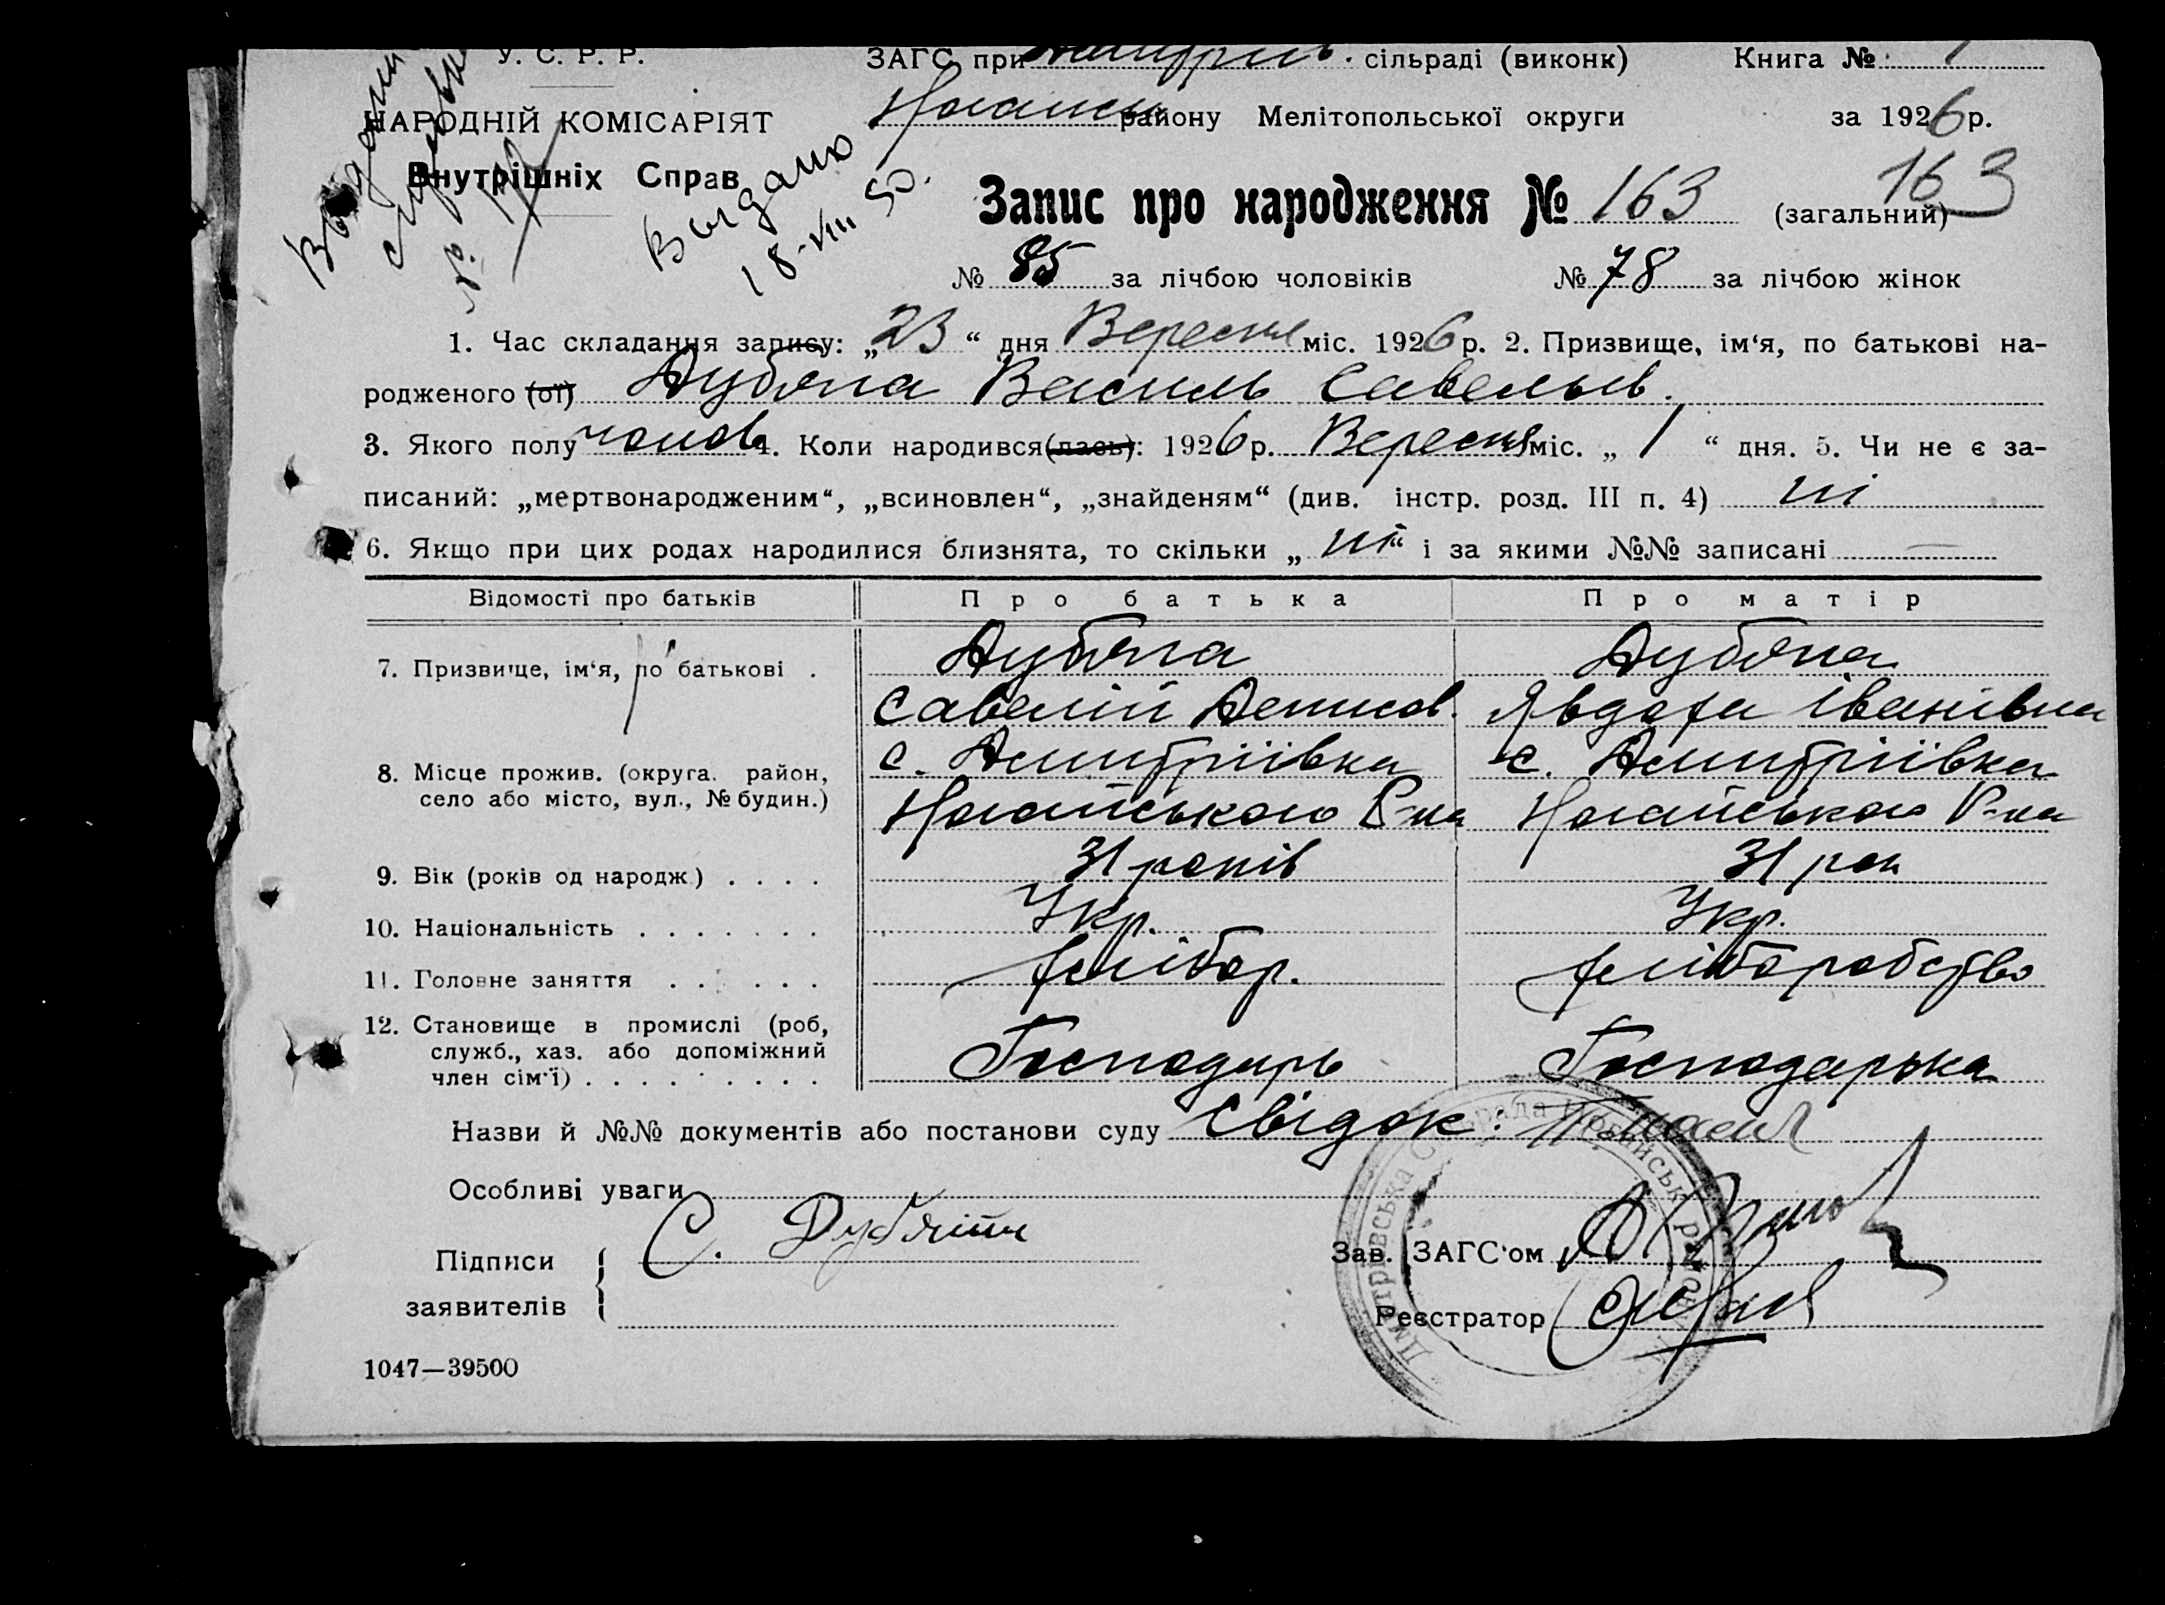 У. С. Р. Р.
ЗАГС при Дмитрів. сільраді (виконк) Книга №
НАРОДНІЙ КОМІСАРІЯТ
Внутрішніх Справ
Ногайськ району Мелітопольської округи за 1926 р.
163
Выдано
18-VIII 50.
Запис про народження № 163 (загальний)
№ 85 за лічбою чоловіків № 78 за лічбою жінок
1. Час складання запису: „23“ дня Вересня міс. 1926 р. 2. Призвище, ім‘я, по батькові на-
родженого (ої) Дубяга Василь Савельів.
3. Якого полу чолов 4. Коли народився (лась): 1926 р. Вересня міс. „1“ дня. 5. Чи не є за-
писаний: „мертвонародженим“, „всиновлен“, „знайденям“ (див. інстр. розд. III п. 4) ні
6. Якщо при цих родах народилися близнята, то скільки „ні“ і за якими №№ записані —
Відомості про батьків Про батька Про матір
7. Призвище, ім‘я, по батькові . Дубяга Дубяга
Савелій Денисов. Явдоха Іванівна
8. Місце прожив. (округа. район, с. Дмитріївка с. Дмитріївка
село або місто, вул., № будин.) Ногайського Р-на Ногайського Р-на
9. Вік (років од народж.) . . . . 31 років 31 рок
10. Національність . . . . . . . Укр. Укр.
11. Головне заняття . . . . . . хлібор. хліборобство
12. Становище в промислі (роб,
служб., хаз. або допоміжний Господарь Господарька
член сім‘ї) . . . . . . . . .
Назви й №№ документів або постанови суду Свідок:
Особливі уваги
Підписи
заявителів
С. Дубяга
Зав. ЗАГС‘ом
Реєстратор
1047—39500